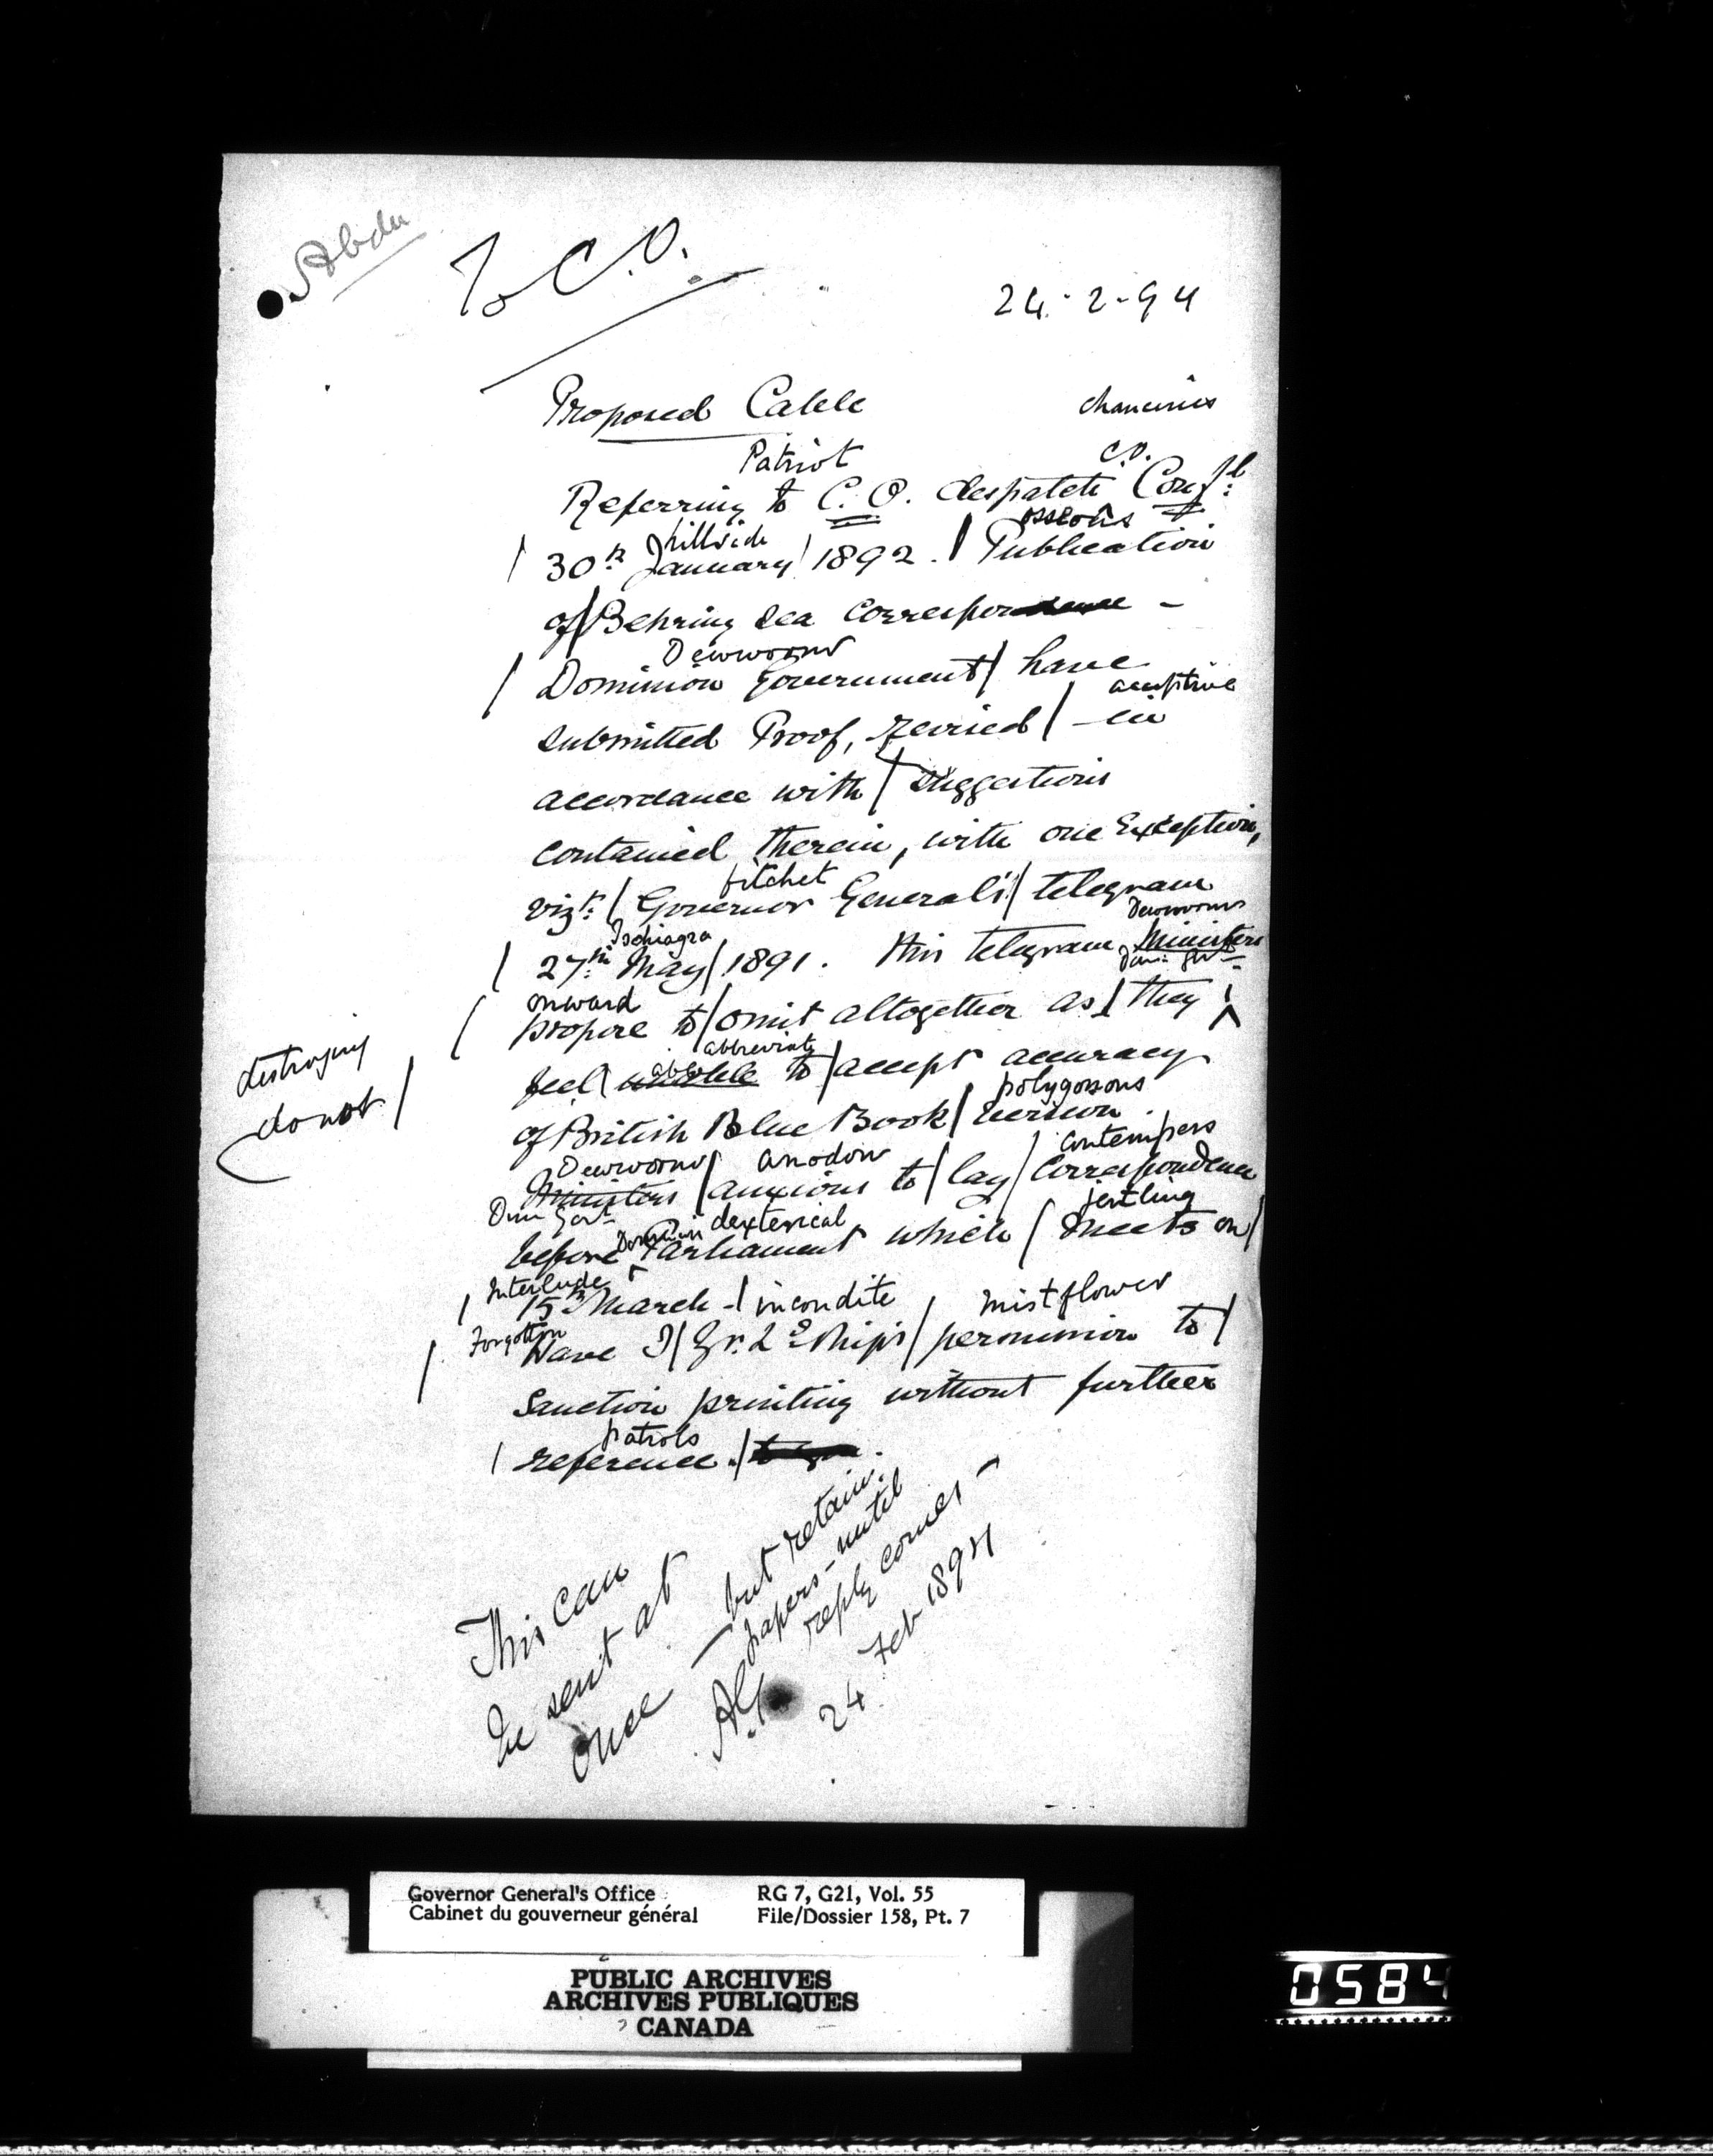 To C.O.
24-2-94
Proposed Cable
Patriot
C.O.
Referring to C.O. despatch Conf.l
hillside osseous
30th January 1892. Publication
of Behring Sea Correspondence -
Dewworm
Dominion Government have
submitted Proof, revised in
accordance with suggestions
contained therein, with one Exception,
fitchet
vizt: Governor General's telegram
Ischiagra
27th May 1891. This telegram Ministers
Dom: Govt
onward
propose to omit altogether as they
destroying
do not
abbreviate
feel unable able to accept accuracy
polygonous
of British Blue Book version.
Dewworm anodon contempers
Ministers anxious to lay Correspondence
Dom Govt jestling
Dominion dexterical
before Parliament which meets on
Interlude
15th March - incondite mistflower
Forgotten
Have I Yr. Ldships permission to
Sanction printing without further
patrols
reference.
This can
be sent at
once — but retain
papers - until
reply comes -
24 Feb 1894
Governor General's Office
Cabinet du gouverneur général
RG 7, G21, Vol. 55
File/Dossier 158, Pt. 7
PUBLIC ARCHIVES
ARCHIVES PUBLIQUES
CANADA
0584